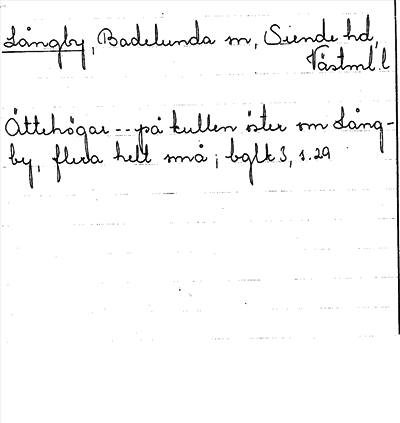 Långby, Badelunda sn, Siende hd,
Västml. l
Ättehögar -- på kullen öster om Lång-
by, flera helt små; bglk 3, s. 29